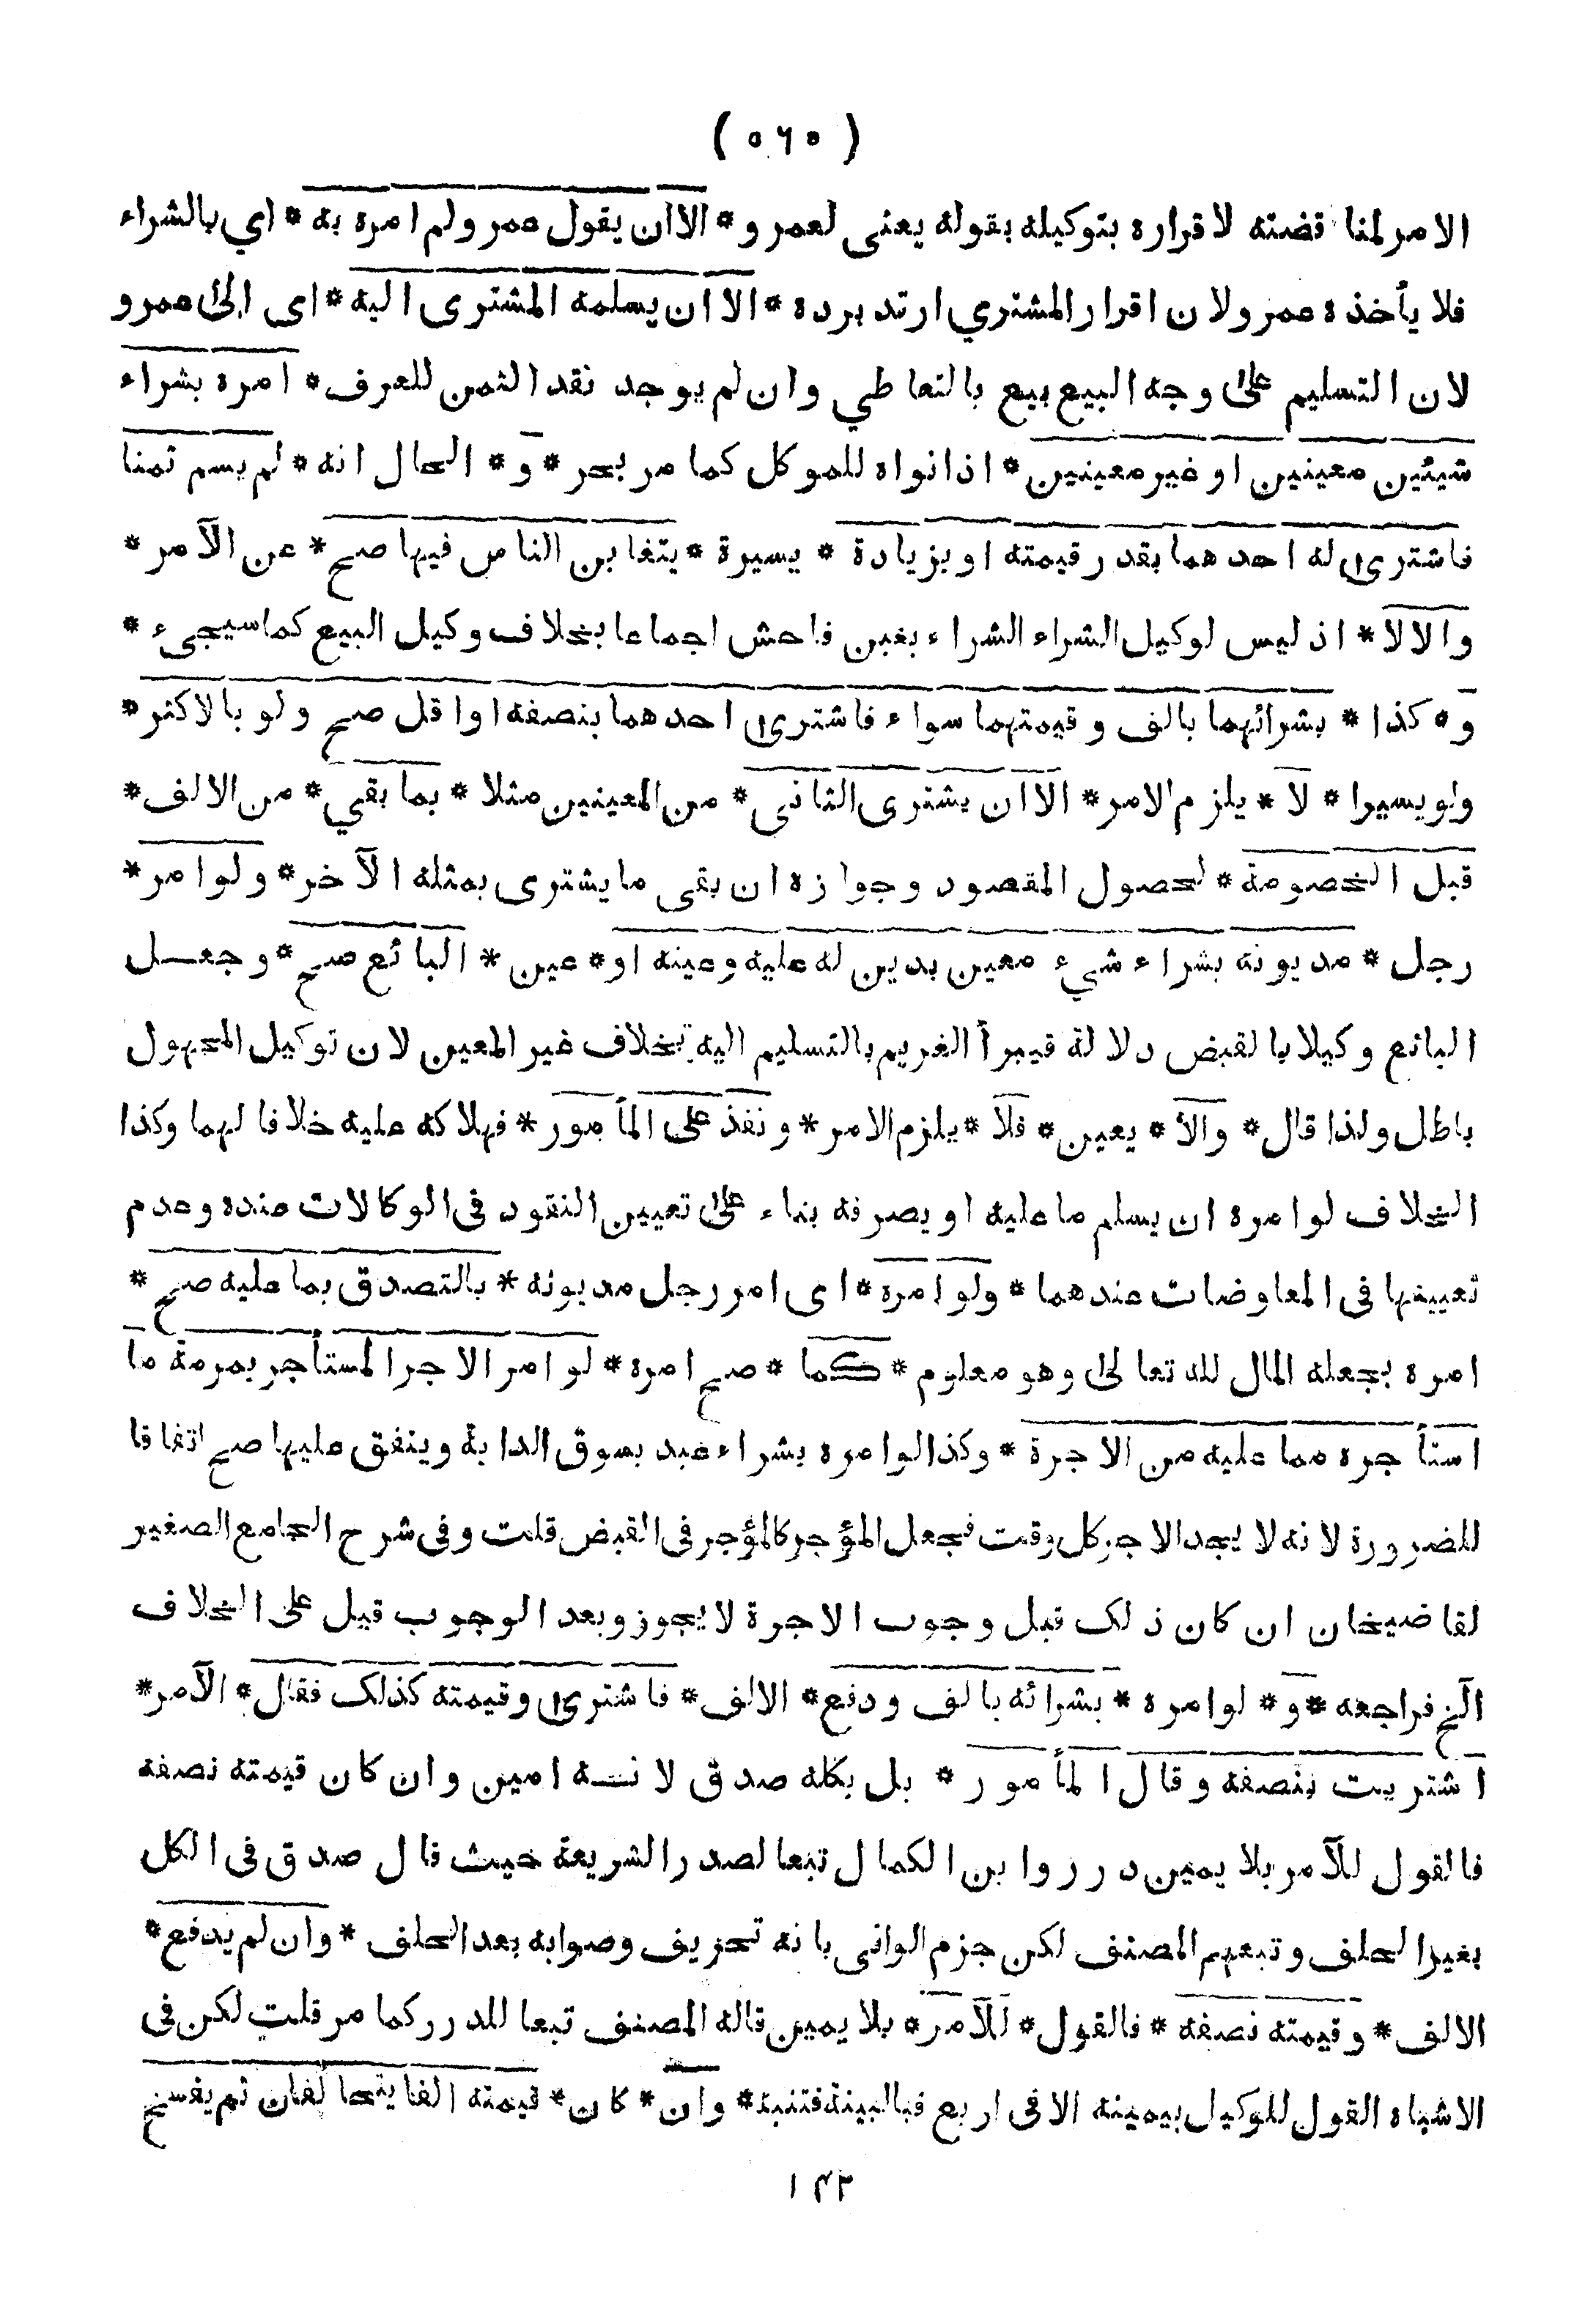 ( ٥٦٥ )
الامر لمنا قضته لا قراره بتوكيله بقوله يعنى لعمر و * الا ان يقول عمر ولم امره به * اي بالشراء
فلا يأخذه عمر ولان اقرار المشتري ارتد برده * الا ان يسلمه المشترى اليه * اى الى عمرو
لان التسليم على وجه البيع بيع بالتعاطي وان لم يوجد نقد الثمن للعرف * امره بشراء
شيئين معينين او غير معينين * اذا نواه للموكل كما مر بحر * و * الحال انه * لم يسم ثمنا
فاشترى له احدهما بقدر قيمته او بزيادة * يسيرة * يتغابن الناس فيها صح * عن الآمر *
والا لا * اذ ليس لوكيل الشراء الشراء بغبن فاحش اجماعا بخلاف وكيل البيع كما سيجىء *
و * كذا * بشرائهما بالف وقيمتهما سواء فاشترى احدهما بنصفه او اقل صح ولو بالاكثر *
ولو يسيرا * لا * يلزم الامر * الا ان يشترى الثانى * من المعينين مثلا * بما بقي * من الالف *
قبل الخصومة * لحصول المقصود وجوازه ان بقى ما يشترى بمثله الآخر * ولو امر *
رجل * مديونه بشراء شيء معين بدين له عليه وعينه او * عين * البائع صح * وجعل
البائع وكيلا بالقبض دلالة فيبرأ الغريم بالتسليم اليه بخلاف غير المعين لان توكيل المجهول
باطل ولذا قال * والا * يعين * فلا * يلزم الامر * ونفذ على المأمور * فهلاكه عليه خلافا لهما وكذا
الخلاف لو امره ان يسلم ما عليه او يصرفه بناء على تعيين النقود فى الوكالات عنده وعدم
تعيينها فى المعاوضات عندهما * ولو امره * اى امر رجل مديونه * بالتصدق بما عليه صح *
امره بجعله المال لله تعالى وهو معلوم * كما * صح امره * لو امر الاجر المستأجر بمرمة ما
استأجره مما عليه من الاجرة * وكذا لو امره بشراء عبد بسوق الدابة وينفق عليها صح اتفاقا
للضرورة لانه لا يجد الاجر كل وقت فجعل المؤجر كالمؤجر فى القبض قلت وفى شرح الجامع الصغير
لقاضيخان ان كان ذلك قبل وجوب الاجرة لا يجوز وبعد الوجوب قيل على الخلاف
الخ فراجعه * و * لو امره * بشرائه بالف ودفع * الالف * فاشترى وقيمته كذلك فقال * الآمر *
اشتريت بنصفه وقال المأمور * بل بكله صدق لانه امين وان كان قيمته نصفه
فالقول للآمر بلا يمين درر وابن الكمال تبعا لصدر الشريعة حيث قال صدق فى الكل
بغير الحلف وتبعهم المصنف لكن جزم الوانى بانه تحريف وصوابه بعد الحلف * وان لم يدفع *
الالف * وقيمته نصفه * فالقول * للآمر * بلا يمين قاله المصنف تبعا للدرر كما مر قلت لكن فى
الاشباه القول للوكيل بيمينه الا فى اربع فبالبينة فتنبه * وان * كان * قيمته الفا يتحالفان ثم يفسخ
١٤٢